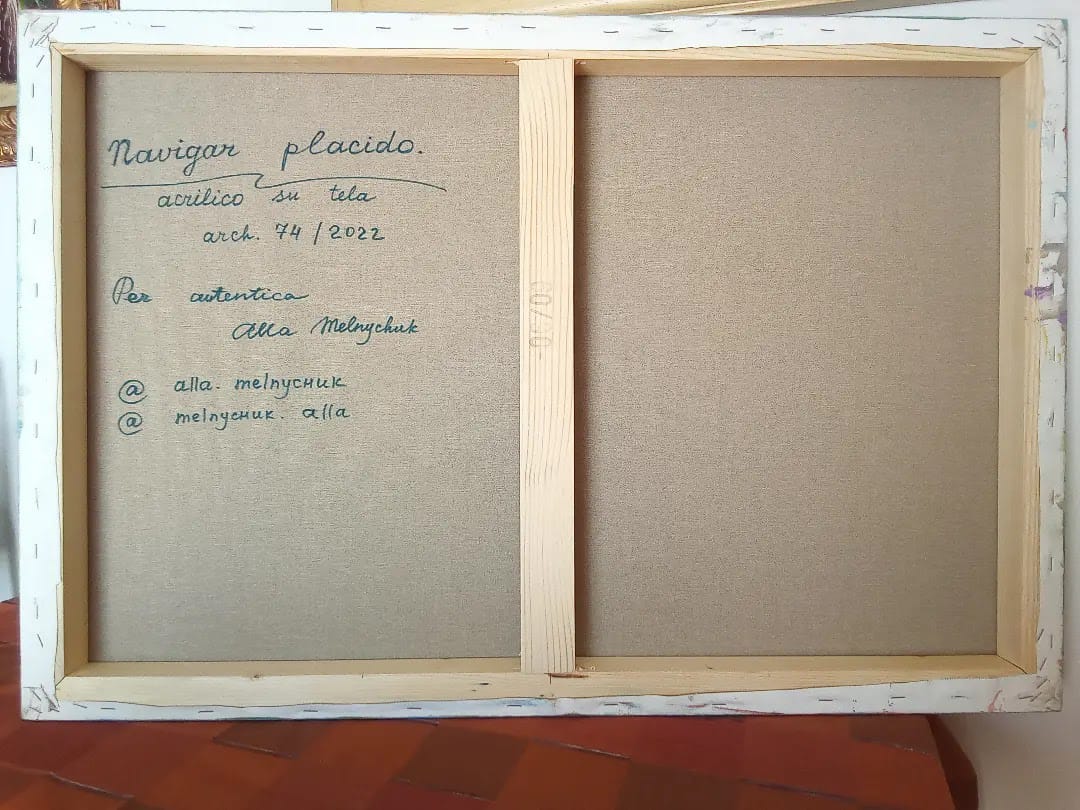 Navigar placido.
acrilico su tela
arch. 74 / 2022
Per autentica
Alla Melnychuk
@ alla. melnycнuк
@ melnycнuк. alla